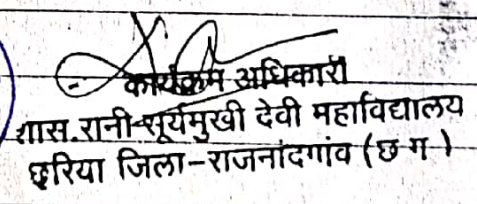 कार्यक्रम अधिकारी
शास.रानी सूर्यमुखी देवी महाविद्यालय
छुरिया जिला-राजनांदगांव (छ ग )